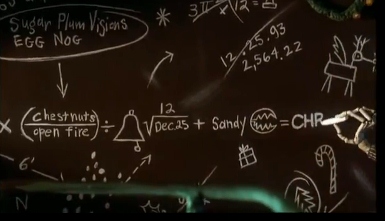 Sugar Plum Visions
EGG NOG
3π × √12 =
12-25.93
2,564.22
× (chestnuts / open fire) ÷ 12√Dec.25 + Sandy = CHR
6'
N